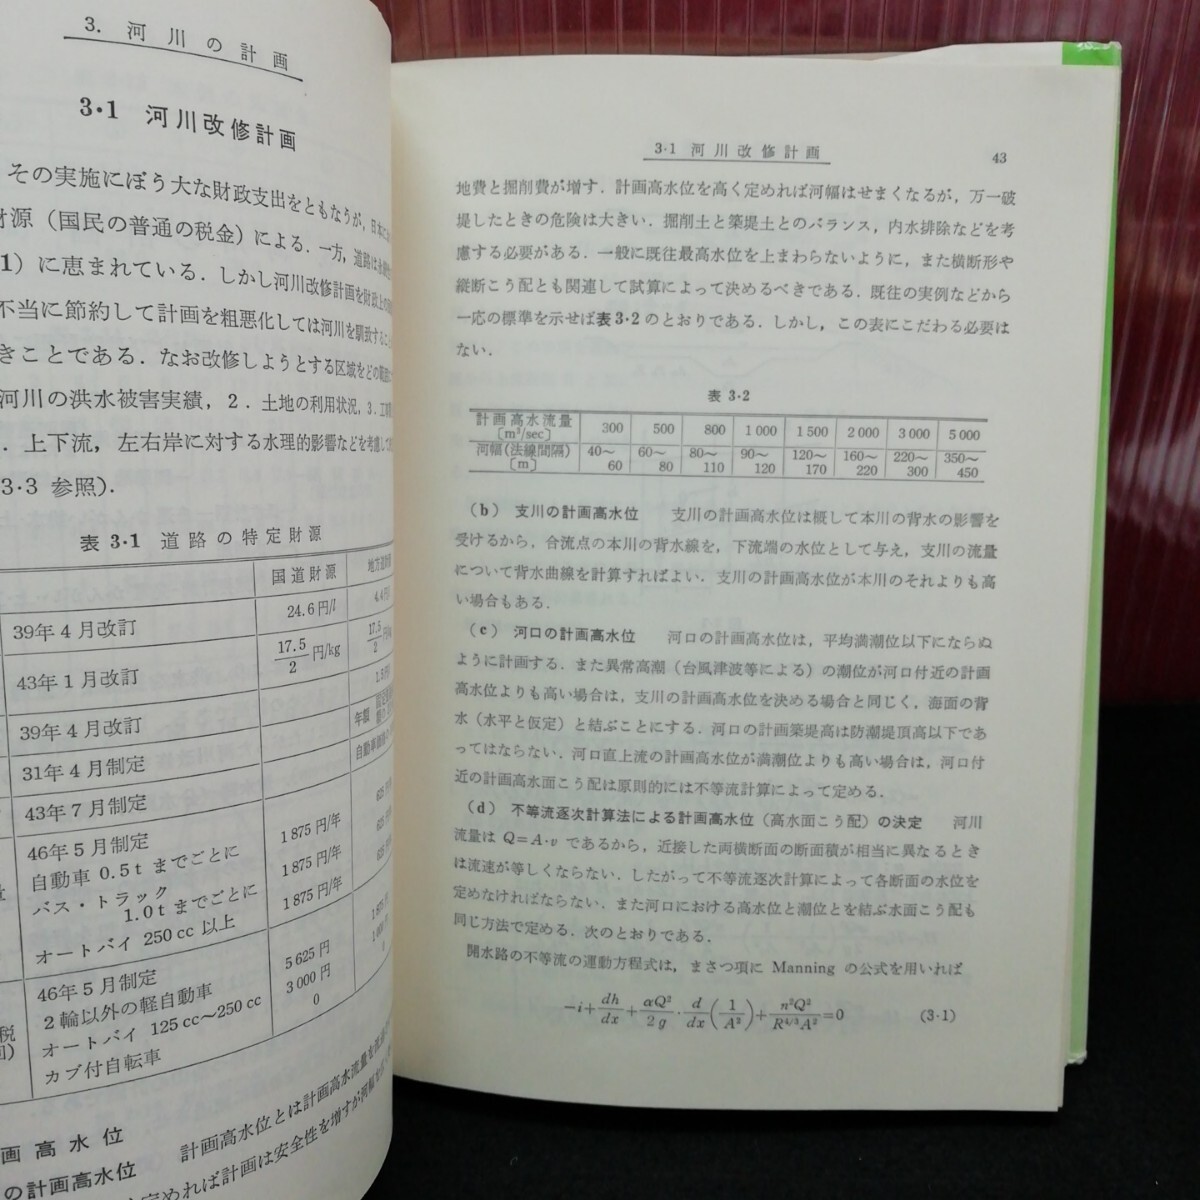 3. 河川の計画
3·1 河川改修計画
その実施にぼう大な財政支出をともなうが,日本に
財源（国民の普通の税金）による．一方，道路は
1）に恵まれている．しかし河川改修計画を財政上の
不当に節約して計画を粗悪化しては河川を馴致する
きことである．なお改修しようとする区域をどの
河川の洪水被害実績，2．土地の利用状況，3．工
．上下流，左右岸に対する水理的影響などを考慮して
3·3 参照）．
表 3·1 道路の特定財源
国道財源 地方道
39年4月改訂 24.6円/l 4.4
43年1月改訂 17.5/2 円/kg 17.5/2
39年4月改訂 1.5
31年4月制定
43年7月制定 自動車
46年5月制定
自動車 0.5t までごとに 1875円/年
バス・トラック
1.0t までごとに 1875円/年
オートバイ 250cc 以上 1875円/年
46年5月制定
2輪以外の軽自動車 5625円
オートバイ 125cc～250cc 3000円
カブ付自転車 0
画高水位
の計画高水位 計画高水位とは計画高水流量を
定めれば計画は安全性を増すが河幅を
3·1 河川改修計画 43
地費と掘削費が増す．計画高水位を高く定めれば河幅はせまくなるが，万一破
堤したときの危険は大きい．掘削土と築堤土とのバランス，内水排除などを考
慮する必要がある．一般に既往最高水位を上まわらないように，また横断形や
縦断こう配とも関連して試算によって決めるべきである．既往の実例などから
一応の標準を示せば表3·2のとおりである．しかし，この表にこだわる必要は
ない．
表 3·2
計画高水流量〔m³/sec〕 300 500 800 1000 1500 2000 3000 5000
河幅(法線間隔)〔m〕 40～60 60～80 80～110 90～120 120～170 160～220 220～300 350～450
(b) 支川の計画高水位 支川の計画高水位は概して本川の背水の影響を
受けるから，合流点の本川の背水線を，下流端の水位として与え，支川の流量
について背水曲線を計算すればよい．支川の計画高水位が本川のそれよりも高
い場合もある．
(c) 河口の計画高水位 河口の計画高水位は，平均満潮位以下にならぬ
ように計画する．また異常高潮（台風津波等による）の潮位が河口付近の計画
高水位よりも高い場合は，支川の計画高水位を決める場合と同じく，海面の背
水（水平と仮定）と結ぶことにする．河口の計画築堤高は防潮堤頂高以下であ
ってはならない．河口直上流の計画高水位が満潮位よりも高い場合は，河口付
近の計画高水面こう配は原則的には不等流計算によって定める．
(d) 不等流逐次計算法による計画高水位（高水面こう配）の決定 河川
流量は Q=A·v であるから，近接した両横断面の断面積が相当に異なるとき
は流速が等しくならない．したがって不等流逐次計算によって各断面の水位を
定めなければならない．また河口における高水位と潮位とを結ぶ水面こう配も
同じ方法で定める．次のとおりである．
開水路の不等流の運動方程式は，まさつ項に Manning の公式を用いれば
−i+dh/dx+αQ²/2g·d/dx(1/A²)+n²Q²/R^{4/3}A²=0 (3·1)